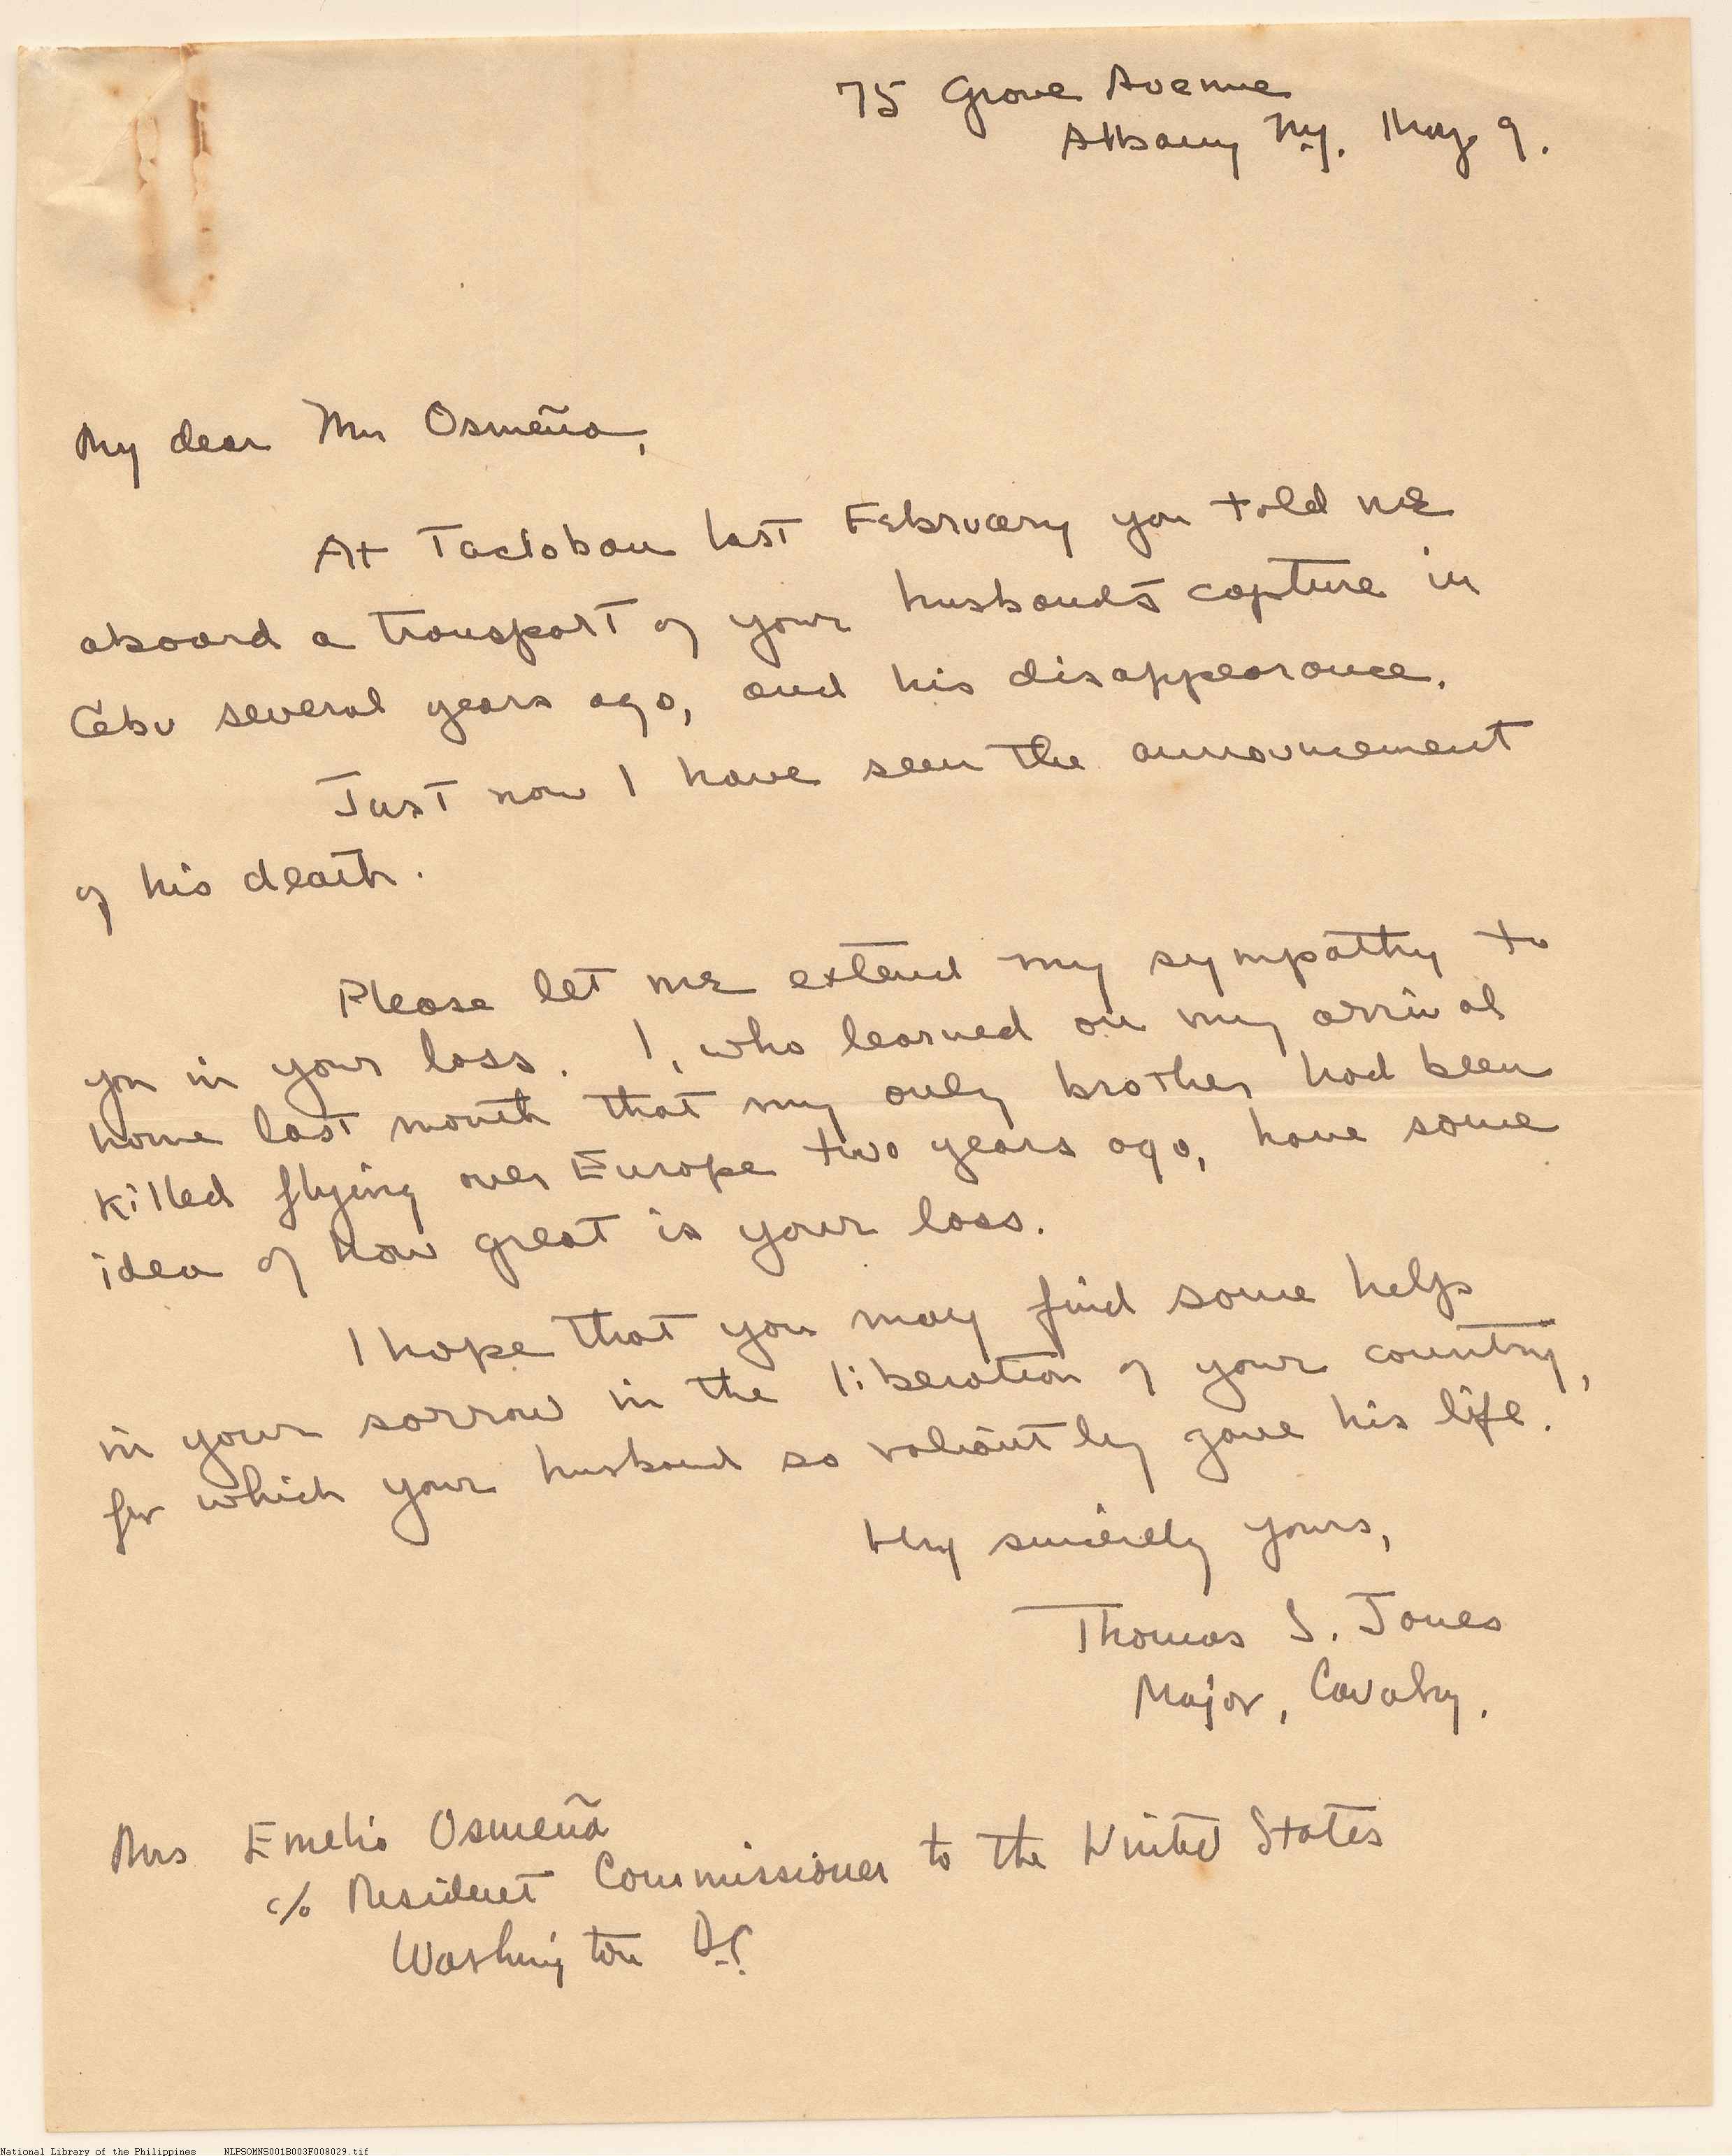 75 Grove Avenue
Albany N.Y. May 9.
My dear Mrs Osmeña,
At Tacloban last February you told me
aboard a transport of your husband's capture in
Cebu several years ago, and his disappearance.
Just now I have seen the announcement
of his death.
Please let me extend my sympathy to
you in your loss. I, who learned on my arrival
home last month that my only brother had been
killed flying over Europe two years ago, have some
idea of how great is your loss.
I hope that you may find some help
in your sorrow in the liberation of your country,
for which your husband so valiantly gave his life.
Very sincerely yours,
Thomas S. Jones
Major, Cavalry.
Mrs Emelio Osmeña
c/o Resident Commissioner to the United States
Washington D.C.
National Library of the Philippines NLPSOMNS001B003F008029.tif